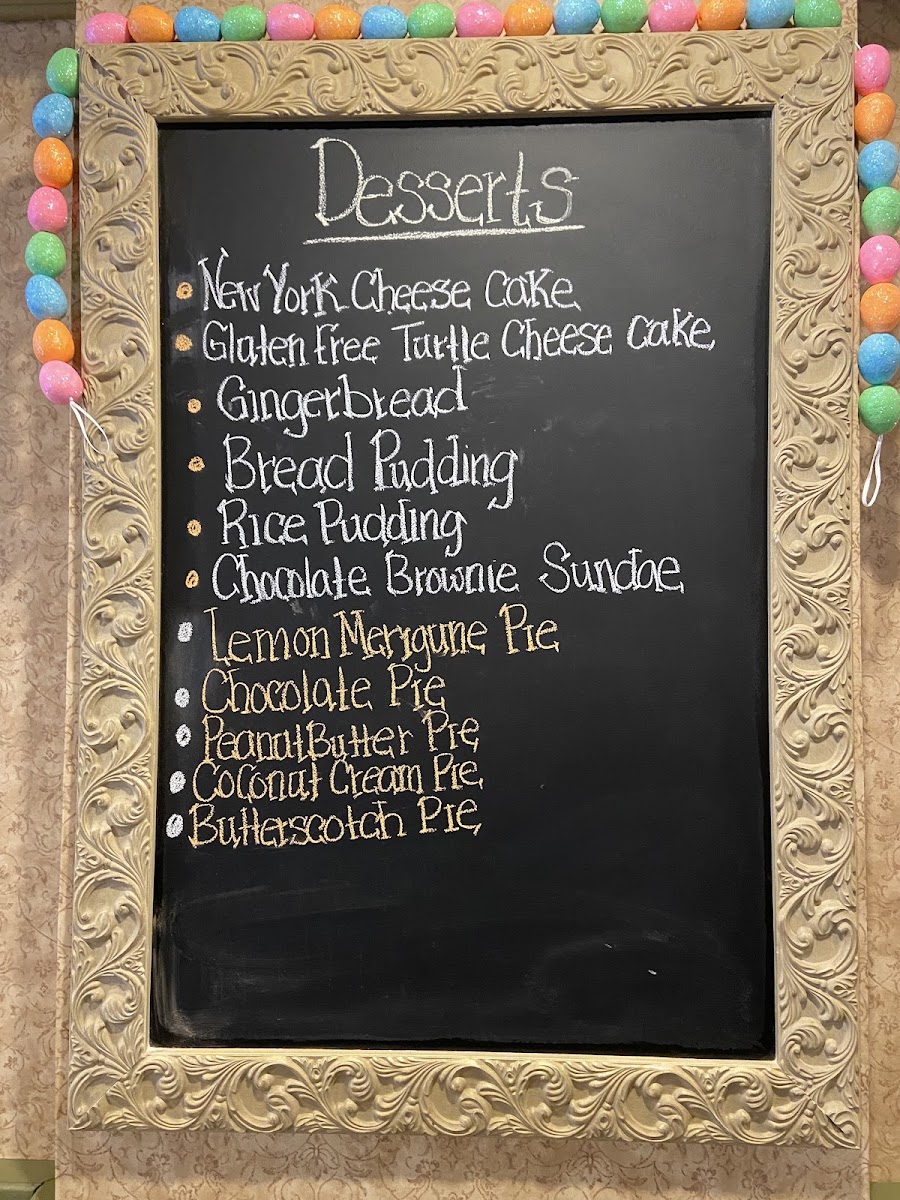 Desserts
New York Cheese cake
Gluten Free Turtle Cheese cake
Gingerbread
Bread Pudding
Rice Pudding
Chocolate Brownie Sundae
Lemon Merigune Pie
Chocolate Pie
Peanut Butter Pie
Coconut Cream Pie
Butterscotch Pie